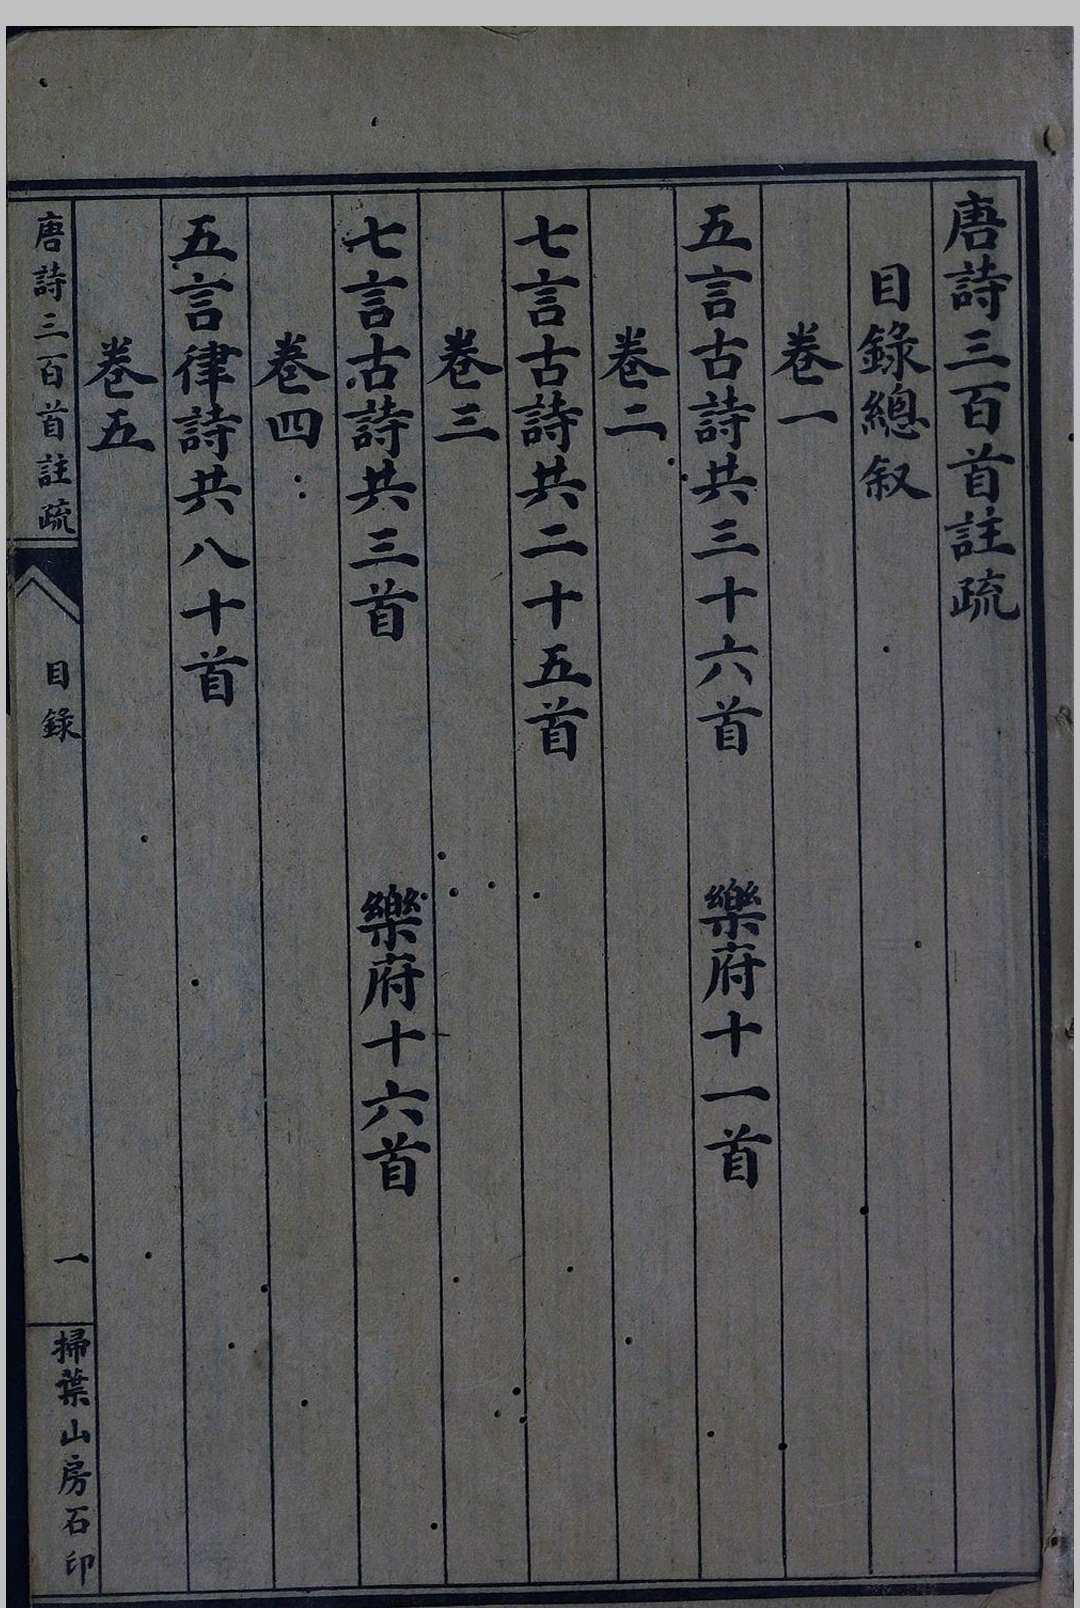 唐詩三百首註疏
目錄總叙
卷一
五言古詩共三十六首　樂府十一首
卷二
七言古詩共二十五首
卷三
七言古詩共三首　樂府十六首
卷四
五言律詩共八十首
卷五
唐詩三百首註疏　目錄　一　掃葉山房石印